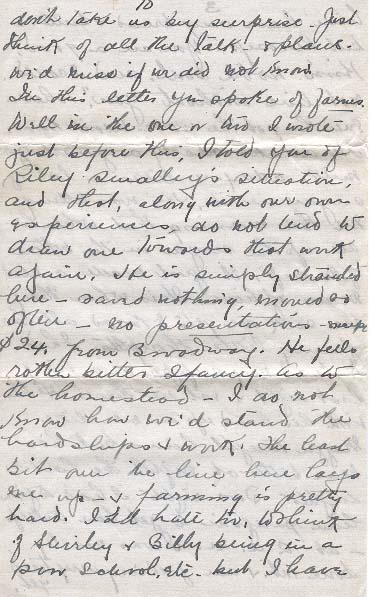 10
don't take us by surprise. Just
think of all the talk - & plans -
we'd miss if we did not know.
In this letter you spoke of farms.
Well in the one or two I wrote
just before this, I told you of
Riley Smalley's situation,
and that, along with our own
experiences, do not tend to
draw one towards that work
again. He is simply stranded
here - saved nothing, moved so
often - no presentations - except
$24 from Broadway. He feels
rather bitter I fancy. As to
the homestead - I do not
know how we'd stand the
hardships & work. The least
bit over the line here lays
me up - & farming is pretty
hard. I'd hate to, to think
of Shirley & Billy being in a
poor school, etc. but I have